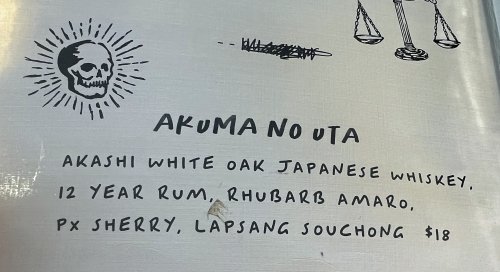 AKUMA NO UTA
AKASHI WHITE OAK JAPANESE WHISKEY,
12 YEAR RUM, RHUBARB AMARO,
PX SHERRY, LAPSANG SOUCHONG $18